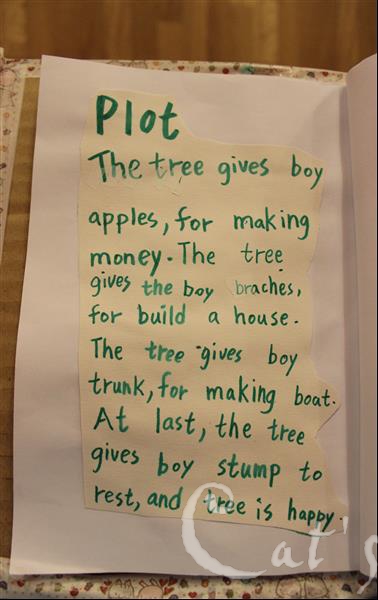 Plot
The tree gives boy
apples, for making
money. The tree
gives the boy braches,
for build a house.
The tree gives boy
trunk, for making boat.
At last, the tree
gives boy stump to
rest, and tree is happy.
Cat's